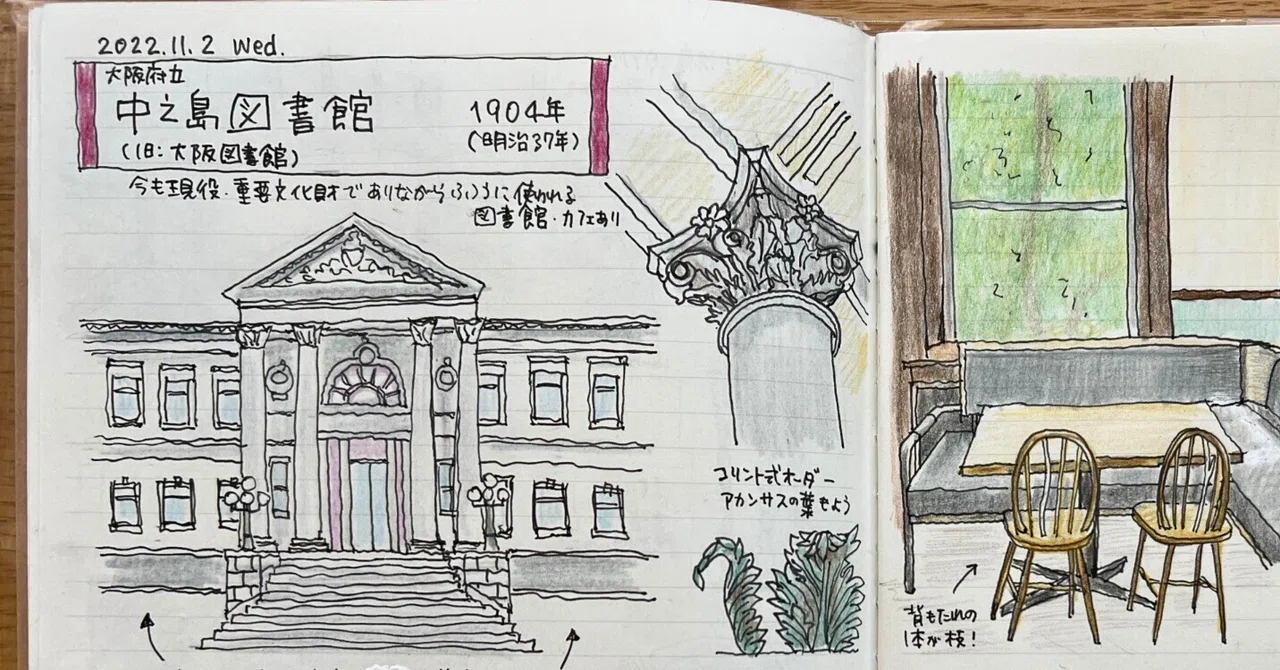 2022.11.2 Wed.
大阪府立
中之島図書館
1904年
(旧:大阪図書館)
(明治37年)
今も現役・重要文化財でありながらふつうに使われる
図書館・カフェあり
コリント式オーダー
アカンサスの葉もよう
背もたれの
1本が枝!